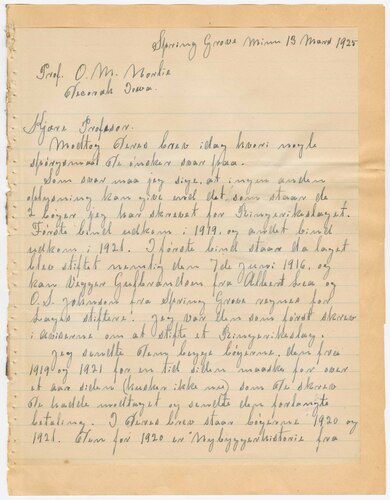 Spring Grove Minn 13 Mars 1925
Prof. O. M. Norlie
Decorah Iowa.
Kjære Profesor.
Modtog Deres brev idag hvori nogle
spörgsmaal De önsker svar paa.
Som svar maa jeg sige, at ingen anden
oplysning kan give end det, som staar de
2 böger jeg har skrevet for Ringerikeslaget.
Förste bind udkom i 1919, og andet bind
udkom i 1921. I förste bind staar da laget
blev stiftet nemlig den 7de Juni 1916, og
kan Vegger Gulbrandsen fra Albert Lea og
O. S. Johnson fra Spring Grove regnes for
lagets stiftere. Jeg var den som först skrev
i aviserne om at stifte et Ringerikeslag.
Jeg sendte Dem begge bögerne, den fra
1919 og 1921 for en tid siden maaske for over
et aar siden (husker ikke nu) som De skrev
De hadde modtaget og sendte den forlangte
betaling. I Deres brev staar bögerne 1920 og
1921. Den for 1920 er "Nybyggerhistorie fra